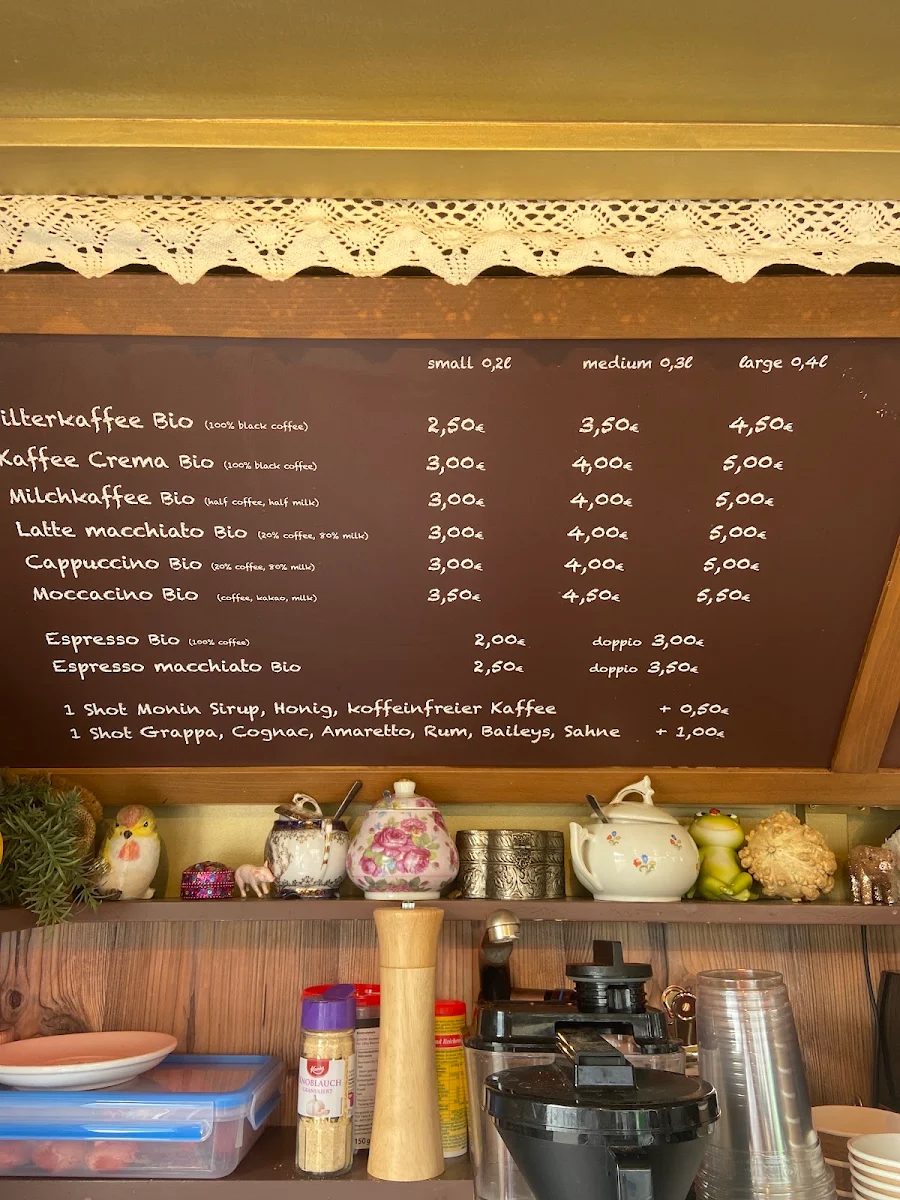 small 0,2l medium 0,3l large 0,4l
ilterkaffee Bio (100% black coffee) 2,50€ 3,50€ 4,50€
Kaffee Crema Bio (100% black coffee) 3,00€ 4,00€ 5,00€
Milchkaffee Bio (half coffee, half milk) 3,00€ 4,00€ 5,00€
Latte macchiato Bio (20% coffee, 80% milk) 3,00€ 4,00€ 5,00€
Cappuccino Bio (20% coffee, 80% milk) 3,00€ 4,00€ 5,00€
Moccacino Bio (coffee, kakao, milk) 3,50€ 4,50€ 5,50€
Espresso Bio (100% coffee) 2,00€ doppio 3,00€
Espresso macchiato Bio 2,50€ doppio 3,50€
1 Shot Monin Sirup, Honig, koffeinfreier Kaffee + 0,50€
1 Shot Grappa, Cognac, Amaretto, Rum, Baileys, Sahne + 1,00€
KNOBLAUCH
GRANULIERT
150g